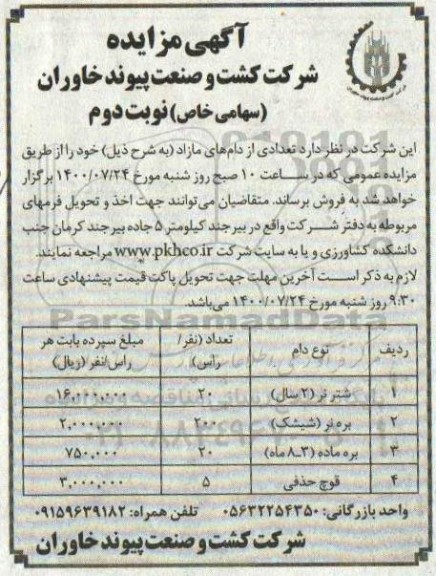 آگهی مزایده
شرکت کشت و صنعت پیوند خاوران
(سهامی خاص) نوبت دوم
این شرکت در نظر دارد تعدادی از دام‌های مازاد (به شرح ذیل) خود را از طریق
مزایده عمومی که در ساعت ۱۰ صبح روز شنبه مورخ ۱۴۰۰/۰۷/۲۴ برگزار
خواهد شد به فروش برساند. متقاضیان می‌توانند جهت اخذ و تحویل فرمهای
مربوطه به دفتر شرکت واقع در بیرجند کیلومتر ۵ جاده بیرجند کرمان جنب
دانشکده کشاورزی و یا به سایت شرکت www.pkhco.ir مراجعه نمایند.
لازم به ذکر است آخرین مهلت جهت تحویل پاکت قیمت پیشنهادی ساعت
۹:۳۰ روز شنبه مورخ ۱۴۰۰/۰۷/۲۴ می‌باشد.
ردیف نوع دام تعداد (نفر/راس) مبلغ سپرده بابت هر راس/نفر (ریال)
۱ شتر نر (۲ سال) ۲۰ ۱۶,۰۰۰,۰۰۰
۲ بره نر (شیشک) ۲۰۰ ۲,۰۰۰,۰۰۰
۳ بره ماده (۳ـ۸ ماه) ۲۰ ۷۵۰,۰۰۰
۴ قوچ حذفی ۵ ۳,۰۰۰,۰۰۰
واحد بازرگانی: ۰۵۶۳۲۲۵۴۳۵۰ تلفن همراه: ۰۹۱۵۹۶۳۹۱۸۲
شرکت کشت و صنعت پیوند خاوران
ParsNamadData